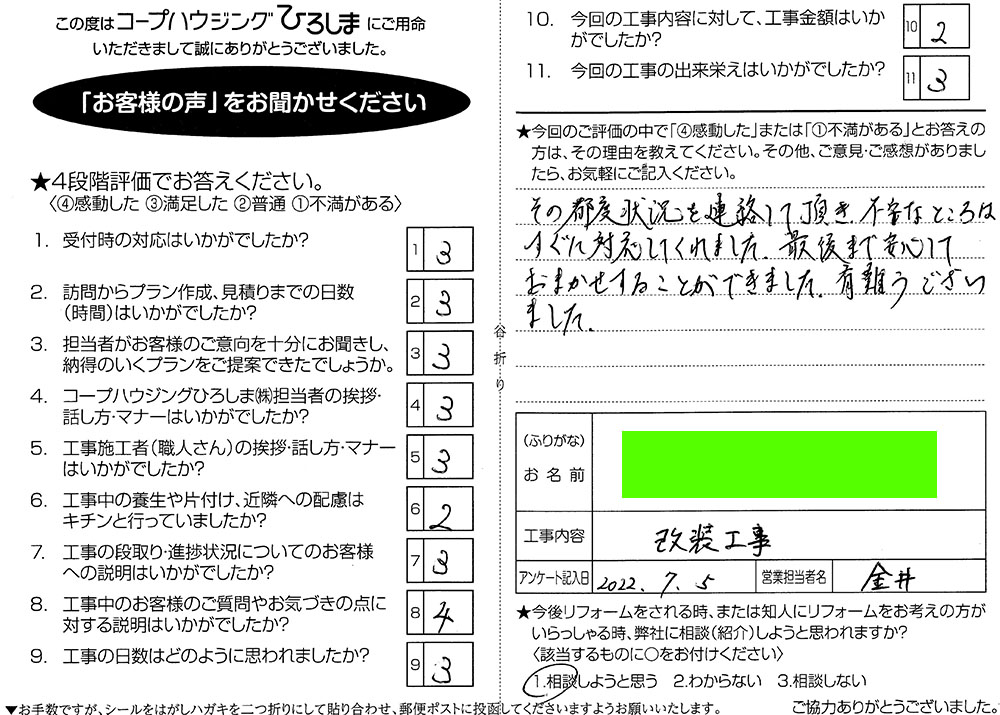 この度はコープハウジングひろしまにご用命
いただきまして誠にありがとうございました。
「お客様の声」をお聞かせください
★4段階評価でお答えください。
〈④感動した ③満足した ②普通 ①不満がある〉
1. 受付時の対応はいかがでしたか?
1 3
2. 訪問からプラン作成、見積りまでの日数
(時間)はいかがでしたか?
2 3
3. 担当者がお客様のご意向を十分にお聞きし、
納得のいくプランをご提案できたでしょうか。
3 3
4. コープハウジングひろしま㈱担当者の挨拶・
話し方・マナーはいかがでしたか?
4 3
5. 工事施工者(職人さん)の挨拶・話し方・マナー
はいかがでしたか?
5 3
6. 工事中の養生や片付け、近隣への配慮は
キチンと行っていましたか?
6 2
7. 工事の段取り・進捗状況についてのお客様
への説明はいかがでしたか?
7 3
8. 工事中のお客様のご質問やお気づきの点に
対する説明はいかがでしたか?
8 4
9. 工事の日数はどのように思われましたか?
9 3
谷折り
10. 今回の工事内容に対して、工事金額はいか
がでしたか?
10 2
11. 今回の工事の出来栄えはいかがでしたか?
11 3
★今回のご評価の中で「④感動した」または「①不満がある」とお答えの
方は、その理由を教えてください。その他、ご意見・ご感想がありまし
たら、お気軽にご記入ください。
その都度状況を連絡して頂き 不安なところは
すぐに対応してくれました。最後まで安心して
おまかせすることができました。有難うござい
ました。
(ふりがな)
お名前
工事内容 改装工事
アンケート記入日 2022. 7. 5 営業担当者名 金井
★今後リフォームをされる時、または知人にリフォームをお考えの方が
いらっしゃる時、弊社に相談(紹介)しようと思われますか?
〈該当するものに○をお付けください〉
1.相談しようと思う 2.わからない 3.相談しない
▼お手数ですが、シールをはがしハガキを二つ折りにして貼り合わせ、郵便ポストに投函してくださいますようお願いいたします。
ご協力ありがとうございました。